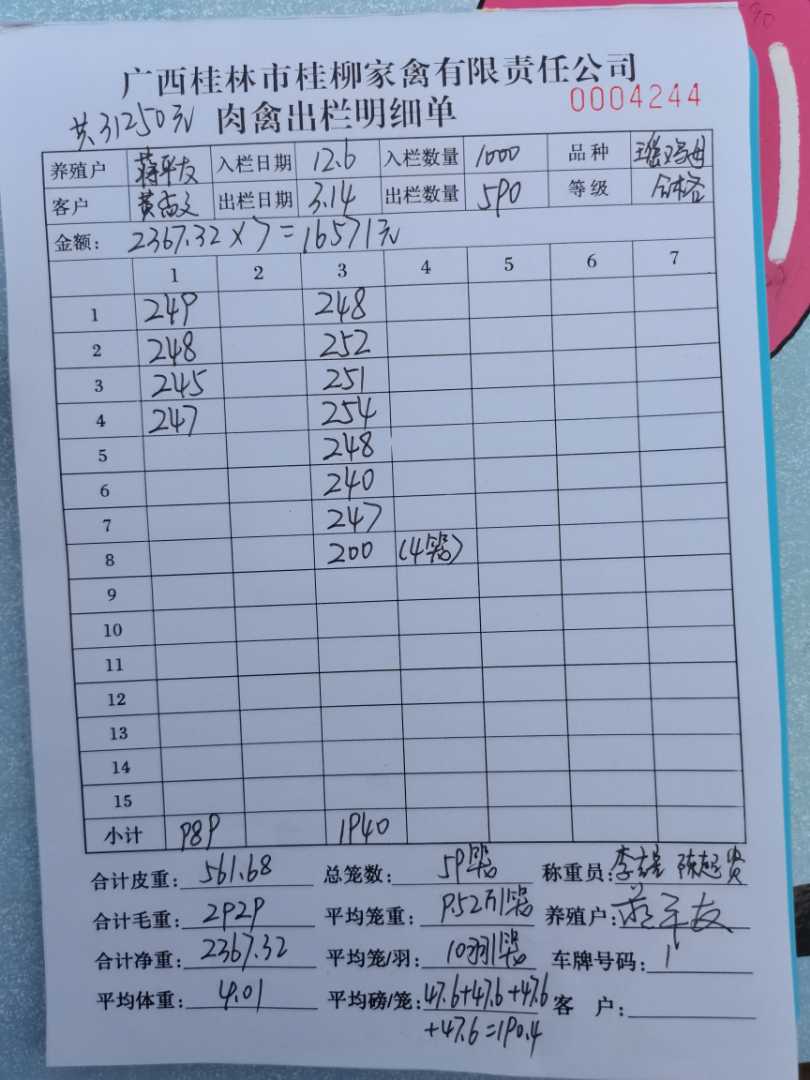 广西桂林市桂柳家禽有限责任公司
共31250元 肉禽出栏明细单 0004244
养殖户 蒋平友 入栏日期 12.6 入栏数量 1000 品种 瑶鸡母
客户 黄高文 出栏日期 3.14 出栏数量 590 等级
金额: 2367.32×7=16571元
1 2 3 4 5 6 7
1 249 248
2 248 252
3 245 251
4 247 254
5 248
6 240
7 247
8 200 (4笼)
9
10
11
12
13
14
15
小计 989 1940
合计皮重: 561.68 总笼数: 59笼 称重员:
合计毛重: 2929 平均笼重: 9.52斤/笼 养殖户: 蒋平友
合计净重: 2367.32 平均笼/羽: 10羽/笼 车牌号码:
平均体重: 4.01 平均磅/笼: 47.6+47.6+47.6 客 户:
+47.6=190.4